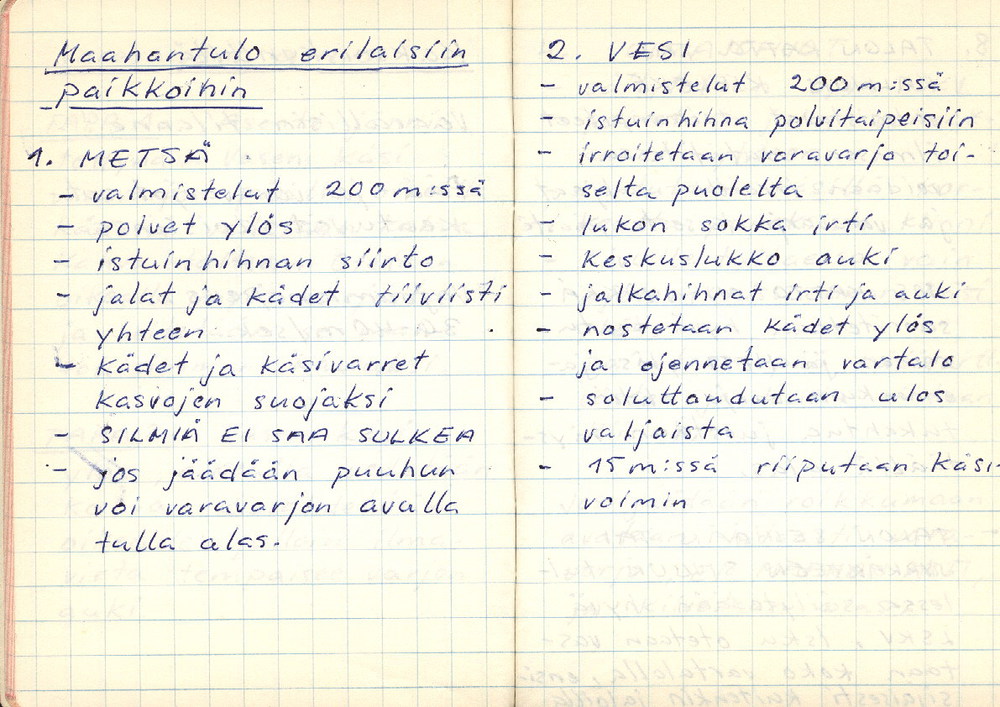 Maahantulo erilaisiin
paikkoihin
1. METSÄ
- valmistelut 200 m:ssä
- polvet ylös
- istuinhihnan siirto
- jalat ja kädet tiiviisti
yhteen
- kädet ja käsivarret
kasvojen suojaksi
- SILMIÄ EI SAA SULKEA
- jos jäädään puuhun
voi varavarjon avulla
tulla alas.
2. VESI
- valmistelut 200 m:ssä
- istuinhihna polvitaipeisiin
- irroitetaan varavarjo toi-
selta puolelta
- lukon sokka irti
- keskuslukko auki
- jalkahihnat irti ja auki
- nostetaan kädet ylös
ja ojennetaan vartalo
- soluttaudutaan ulos
valjaista
- 15 m:ssä riiputaan käsi-
voimin